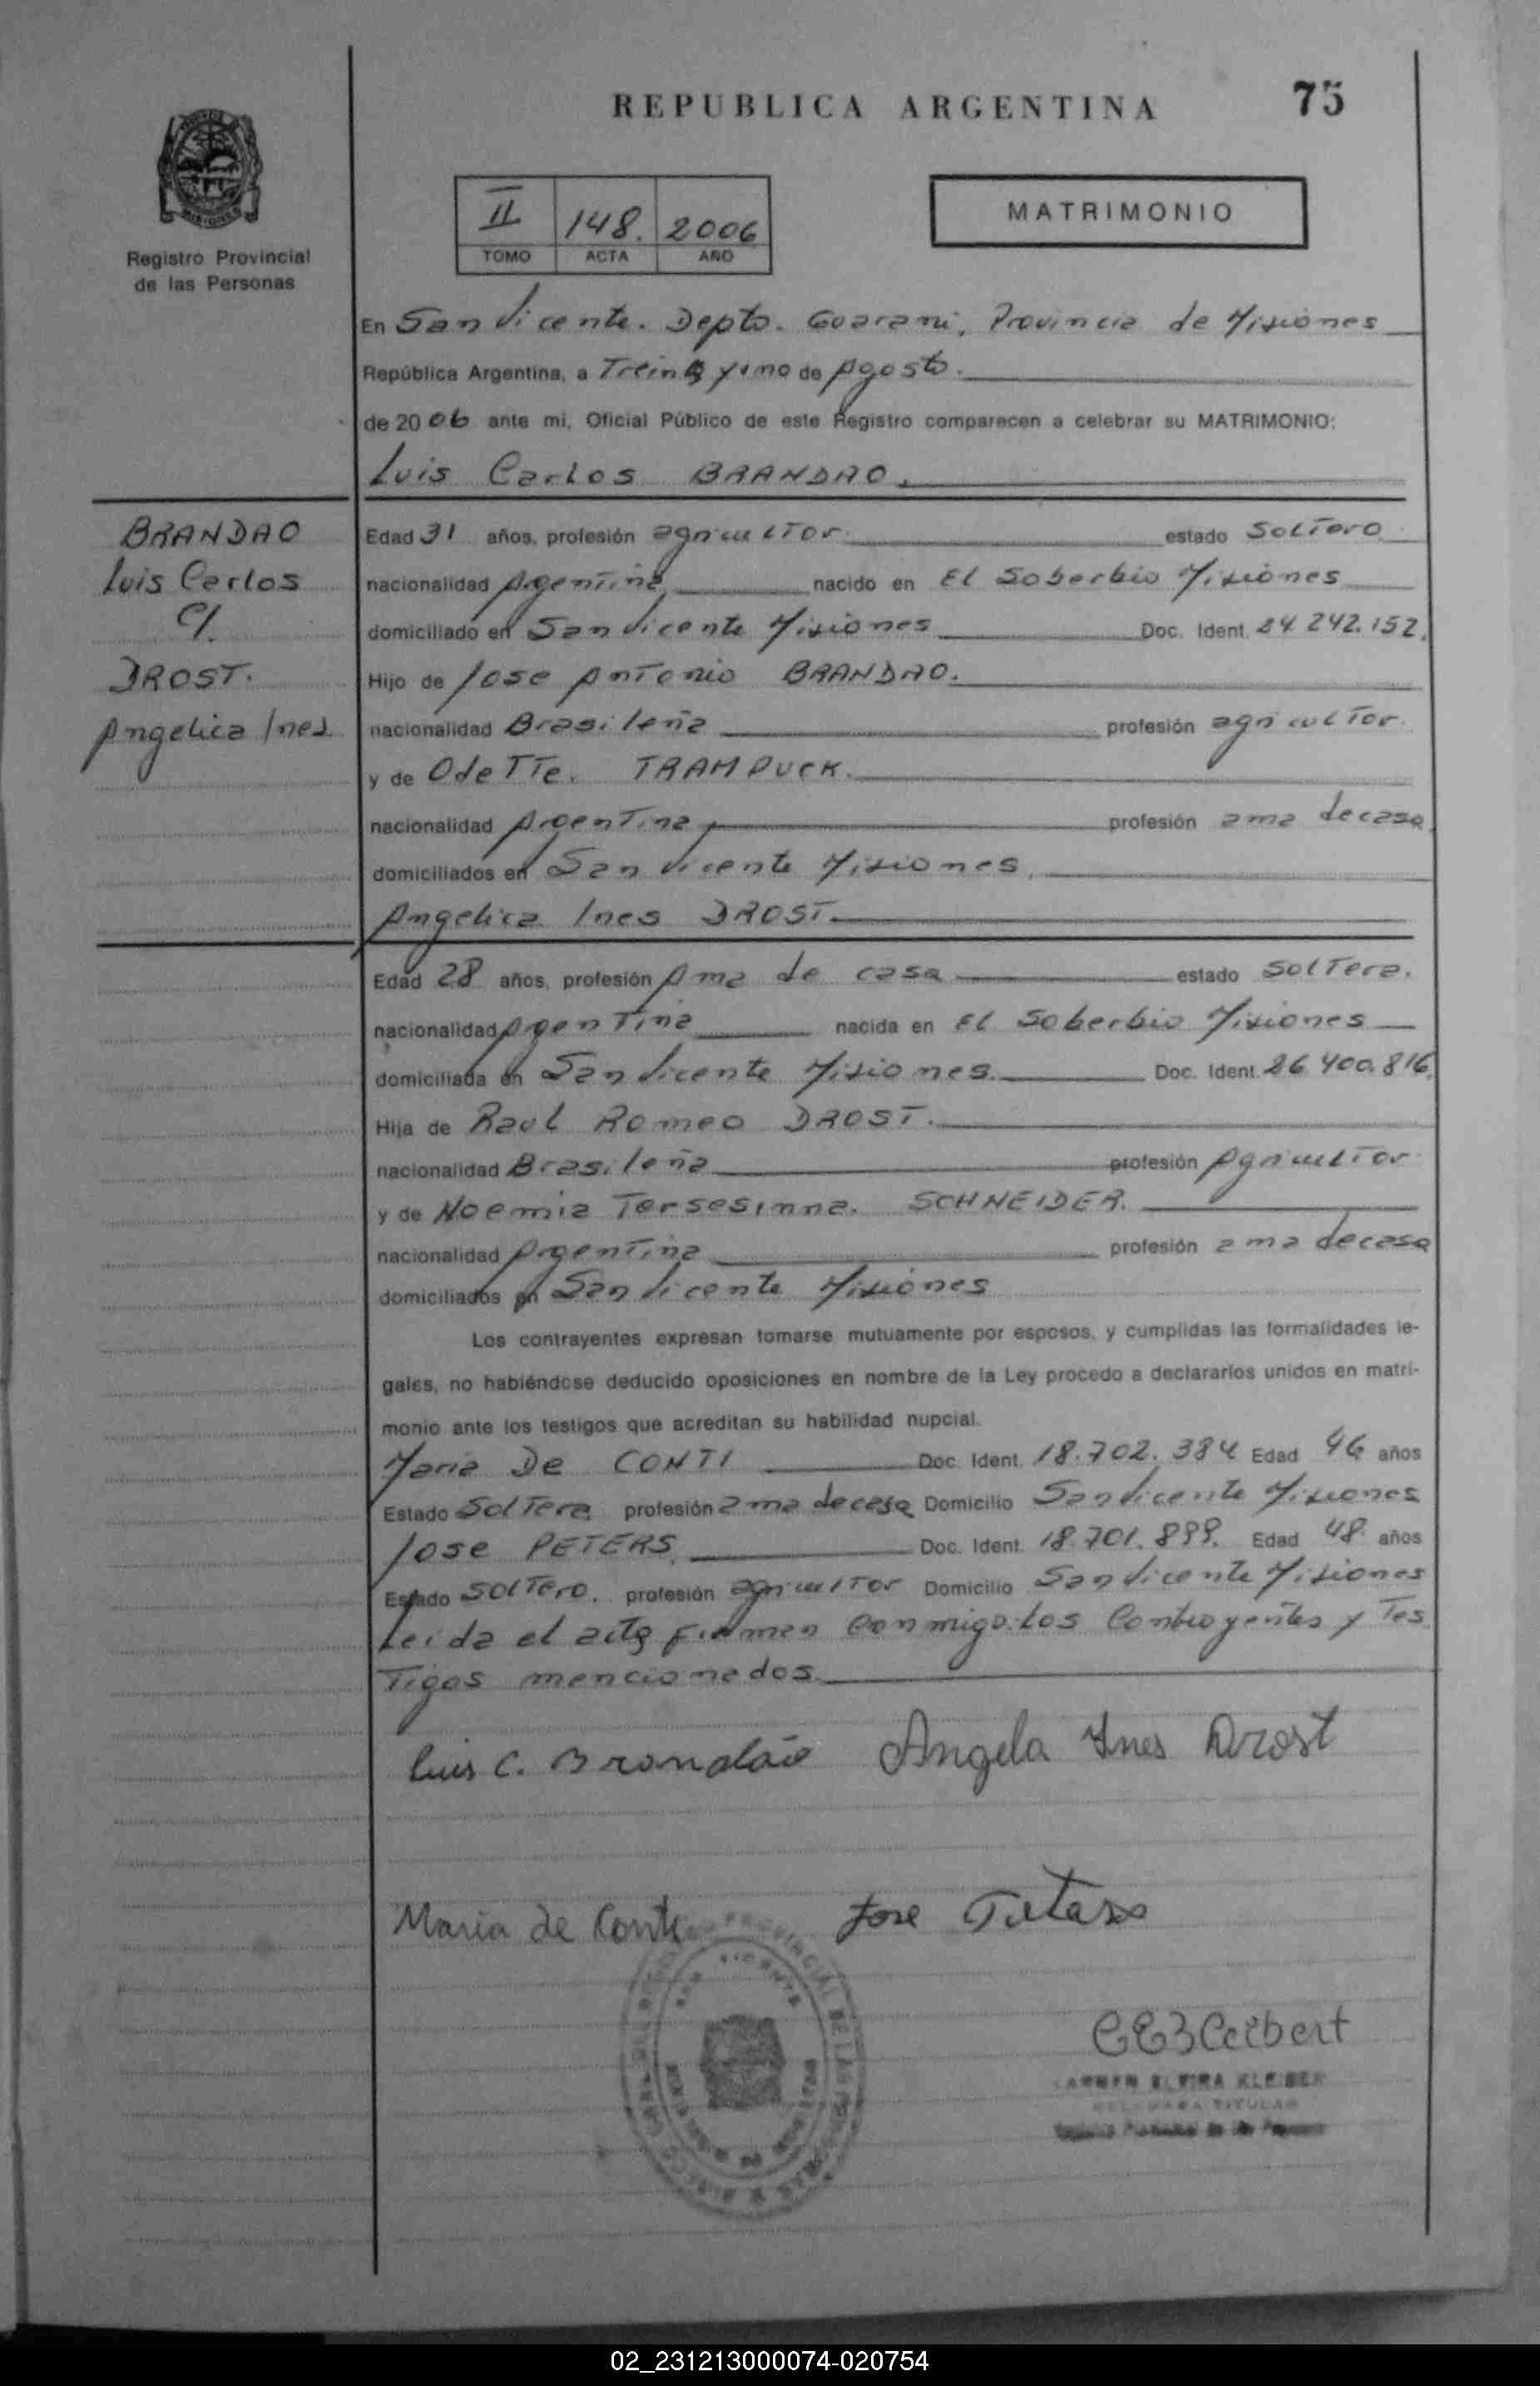 REPUBLICA ARGENTINA
75
MATRIMONIO
II 148. 2006
TOMO ACTA AÑO
Registro Provincial
de las Personas
En San Vicente. Depto. Guarani, Provincia de Misiones
República Argentina, a Treinta y uno de Agosto.
de 2006 ante mi, Oficial Público de este Registro comparecen a celebrar su MATRIMONIO:
Luis Carlos BRANDAO.
BRANDAO
Luis Carlos
c/.
DROST.
Angelica Ines
Edad 31 años, profesión agricultor. estado Soltero
nacionalidad Argentina nacido en El Soberbio Misiones
domiciliado en San Vicente Misiones Doc. Ident. 24.242.152.
Hijo de Jose Antonio BRANDAO.
nacionalidad Brasileña profesión agricultor.
y de Odette. TRAMPUCK.
nacionalidad Argentina profesión ama de casa.
domiciliados en San Vicente Misiones.
Angelica Ines DROST.
Edad 28 años, profesión Ama de casa estado Soltera.
nacionalidad Argentina nacida en El Soberbio Misiones
domiciliada en San Vicente Misiones. Doc. Ident. 26.400.816.
Hija de Raul Romeo DROST.
nacionalidad Brasileña profesión Agricultor
y de Noemia Tersesinna. SCHNEIDER.
nacionalidad Argentina profesión ama de casa
domiciliados en San Vicente Misiones
Los contrayentes expresan tomarse mutuamente por esposos, y cumplidas las formalidades le-
gales, no habiéndose deducido oposiciones en nombre de la Ley procedo a declararlos unidos en matri-
monio ante los testigos que acreditan su habilidad nupcial.
Maria De CONTI Doc. Ident. 18.702.384 Edad 46 años
Estado Soltera profesión ama de casa Domicilio San Vicente Misiones
Jose PETERS. Doc. Ident. 18.701.899. Edad 48 años
Estado Soltero. profesión agricultor Domicilio San Vicente Misiones
Leida el acta firman conmigo Los Contrayentes y Tes
Tigos mencionados.
Luis C. Brandão Angela Ines Drost
Maria de Conti Jose
SAN VICENTE
ELVIRA KLEIBER
TITULAR
02_231213000074-020754